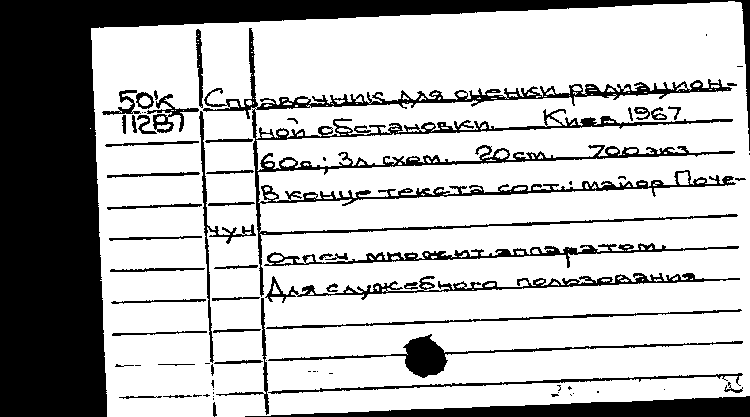 50К Справочник для оценки радиацион-
112В7 ной обстановки. Киев, 1967.
60с.; 3л. схем. 20см. 700экз.
В конце текста сост.: майор Поче-
чун
Отпеч. множит. аппаратом.
Для служебного пользования